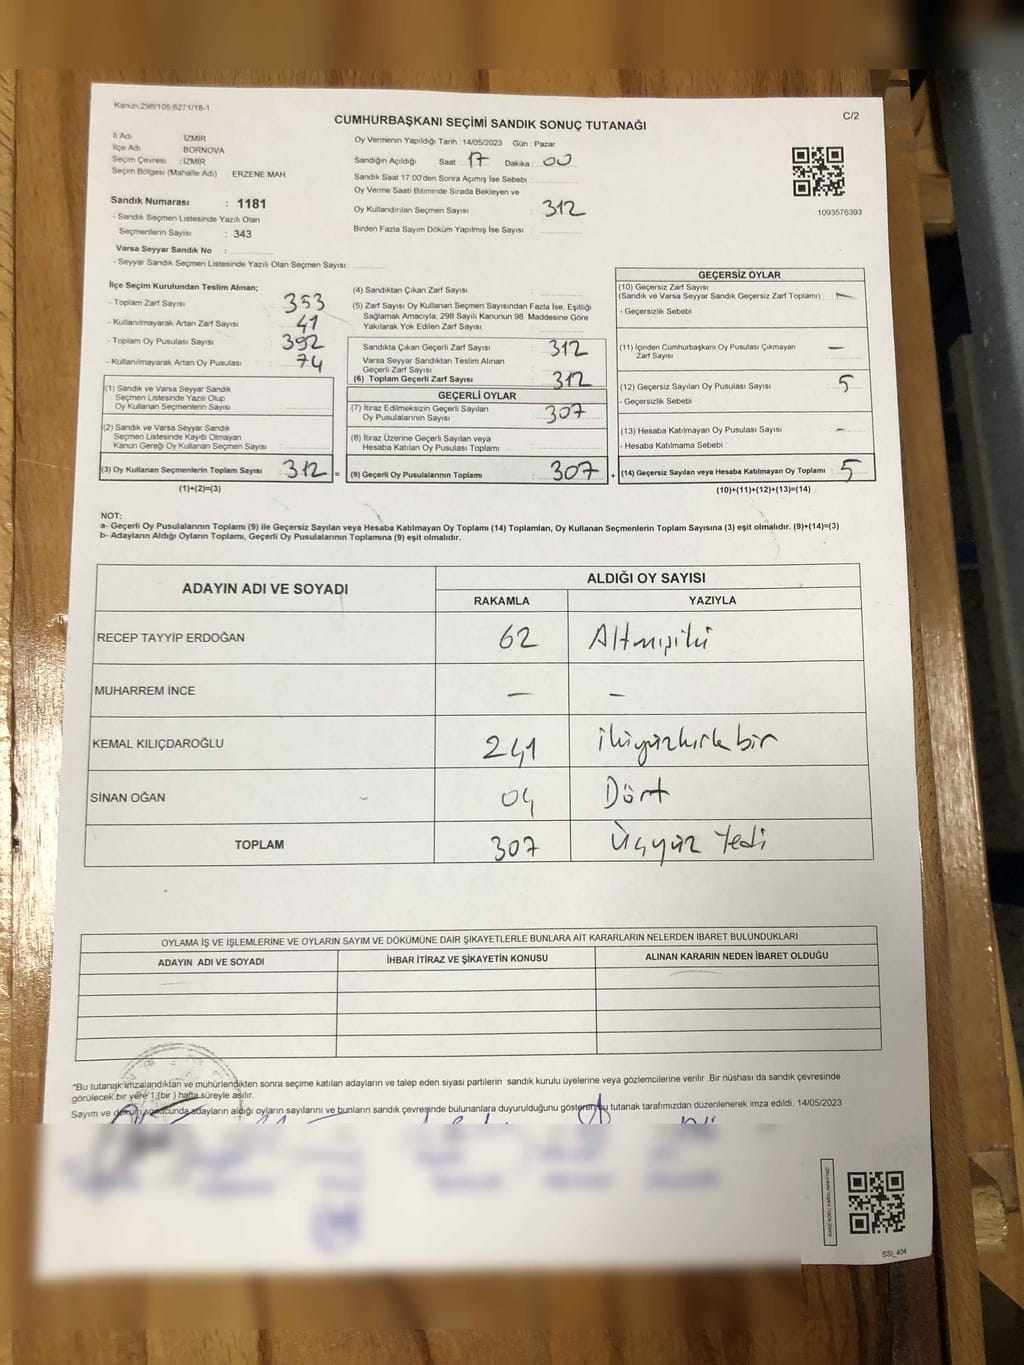 Kanun;298/105;6271/18-1
CUMHURBAŞKANI SEÇİMİ SANDIK SONUÇ TUTANAĞI
C/2
İl Adı İZMİR
İlçe Adı BORNOVA
Seçim Çevresi : İZMİR
Seçim Bölgesi (Mahalle Adı) ERZENE MAH
Sandık Numarası : 1181
- Sandık Seçmen Listesinde Yazılı Olan
Seçmenlerin Sayısı : 343
Varsa Seyyar Sandık No :
- Seyyar Sandık Seçmen Listesinde Yazılı Olan Seçmen Sayısı:
Oy Vermenin Yapıldığı Tarih : 14/05/2023 Gün : Pazar
Sandığın Açıldığı Saat : 17 Dakika : 00
Sandık Saat 17:00'den Sonra Açımış İse Sebebi :
Oy Verme Saati Bitiminde Sırada Bekleyen ve
Oy Kullandırılan Seçmen Sayısı : 312
Birden Fazla Sayım Döküm Yapılmış İse Sayısı :
1093576393
İlçe Seçim Kurulundan Teslim Alınan;
- Toplam Zarf Sayısı : 353
- Kullanılmayarak Artan Zarf Sayısı : 41
- Toplam Oy Pusulası Sayısı : 392
- Kullanılmayarak Artan Oy Pusulası : 74
(1) Sandık ve Varsa Seyyar Sandık
Seçmen Listesinde Yazılı Olup
Oy Kullanan Seçmenlerin Sayısı :
(2) Sandık ve Varsa Seyyar Sandık
Seçmen Listesinde Kayıtlı Olmayan
Kanun Gereği Oy Kullanan Seçmen Sayısı :
(3) Oy Kullanan Seçmenlerin Toplam Sayısı : 312 =
(1)+(2)=(3)
(4) Sandıktan Çıkan Zarf Sayısı :
(5) Zarf Sayısı Oy Kullanan Seçmen Sayısından Fazla İse, Eşitliği
Sağlamak Amacıyla, 298 Sayılı Kanunun 98. Maddesine Göre
Yakılarak Yok Edilen Zarf Sayısı :
Sandıkta Çıkan Geçerli Zarf Sayısı : 312
Varsa Seyyar Sandıktan Teslim Alınan
Geçerli Zarf Sayısı :
(6) Toplam Geçerli Zarf Sayısı : 312
GEÇERLİ OYLAR
(7) İtiraz Edilmeksizin Geçerli Sayılan
Oy Pusulalarının Sayısı : 307
(8) İtiraz Üzerine Geçerli Sayılan veya
Hesaba Katılan Oy Pusulası Toplamı :
(9) Geçerli Oy Pusulalarının Toplamı : 307 +
GEÇERSİZ OYLAR
(10) Geçersiz Zarf Sayısı
(Sandık ve Varsa Seyyar Sandık Geçersiz Zarf Toplamı) : —
- Geçersizlik Sebebi :
(11) İçinden Cumhurbaşkanı Oy Pusulası Çıkmayan
Zarf Sayısı : —
(12) Geçersiz Sayılan Oy Pusulası Sayısı : 5
- Geçersizlik Sebebi :
(13) Hesaba Katılmayan Oy Pusulası Sayısı : –
- Hesaba Katılmama Sebebi :
(14) Geçersiz Sayılan veya Hesaba Katılmayan Oy Toplamı : 5
(10)+(11)+(12)+(13)=(14)
NOT:
a- Geçerli Oy Pusulalarının Toplamı (9) ile Geçersiz Sayılan veya Hesaba Katılmayan Oy Toplamı (14) Toplamları, Oy Kullanan Seçmenlerin Toplam Sayısına (3) eşit olmalıdır. (9)+(14)=(3)
b- Adayların Aldığı Oyların Toplamı, Geçerli Oy Pusulalarının Toplamına (9) eşit olmalıdır.
ADAYIN ADI VE SOYADI ALDIĞI OY SAYISI
RAKAMLA YAZIYLA
RECEP TAYYİP ERDOĞAN 62 Altmışiki
MUHARREM İNCE — –
KEMAL KILIÇDAROĞLU 241 ikiyüzkırk bir
SİNAN OĞAN 04 Dört
TOPLAM 307 Üçyüz Yedi
OYLAMA İŞ VE İŞLEMLERİNE VE OYLARIN SAYIM VE DÖKÜMÜNE DAİR ŞİKAYETLERLE BUNLARA AİT KARARLARIN NELERDEN İBARET BULUNDUKLARI
ADAYIN ADI VE SOYADI İHBAR İTİRAZ VE ŞİKAYETİN KONUSU ALINAN KARARIN NEDEN İBARET OLDUĞU
*Bu tutanak imzalandıktan ve mühürlendikten sonra seçime katılan adayların ve talep eden siyasi partilerin sandık kurulu üyelerine veya gözlemcilerine verilir .Bir nüshası da sandık çevresinde
görülecek bir yere 1 (bir ) hafta süreyle asılır.
Sayım ve döküm sonucunda adayların aldığı oyların sayılarını ve bunların sandık çevresinde bulunanlara duyurulduğunu gösteren bu tutanak tarafımızdan düzenlenerek imza edildi. 14/05/2023
SSI_404